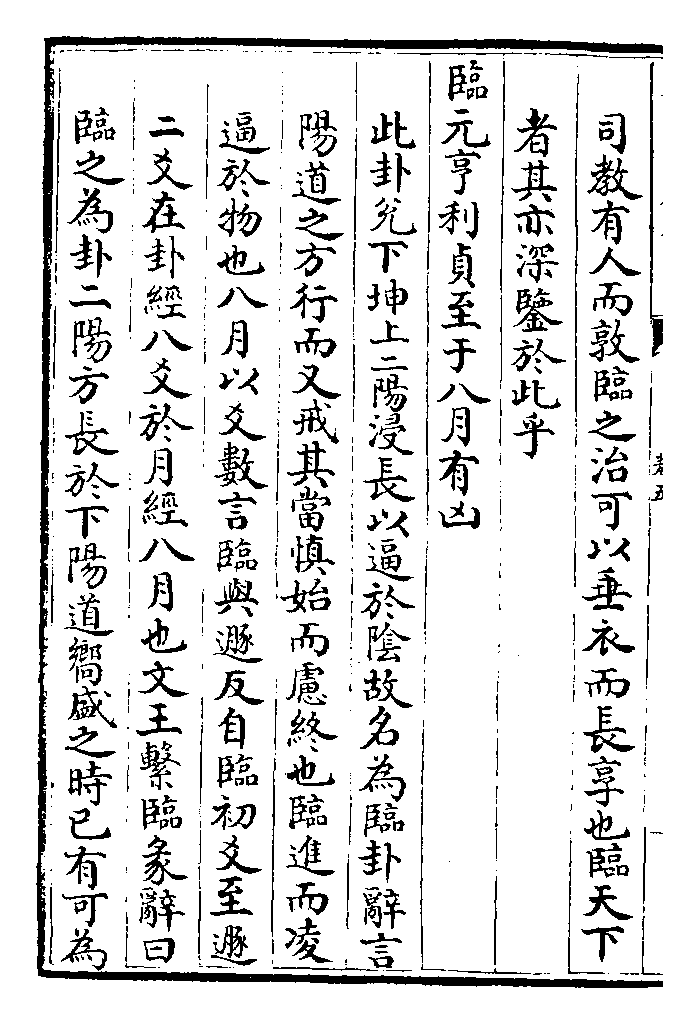 司教有人而敦臨之治可以垂衣而長享也臨天下
者其亦深鑒於此乎
臨元亨利貞至于八月有凶
此卦兌下坤上二陽浸長以逼於陰故名為臨卦辭言
陽道之方行而又戒其當慎始而慮終也臨進而凌
逼於物也八月以爻數言臨與遯反自臨初爻至遯
二爻在卦經八爻於月經八月也文王繫臨彖辭曰
臨之為卦二陽方長於下陽道嚮盛之時已有可為